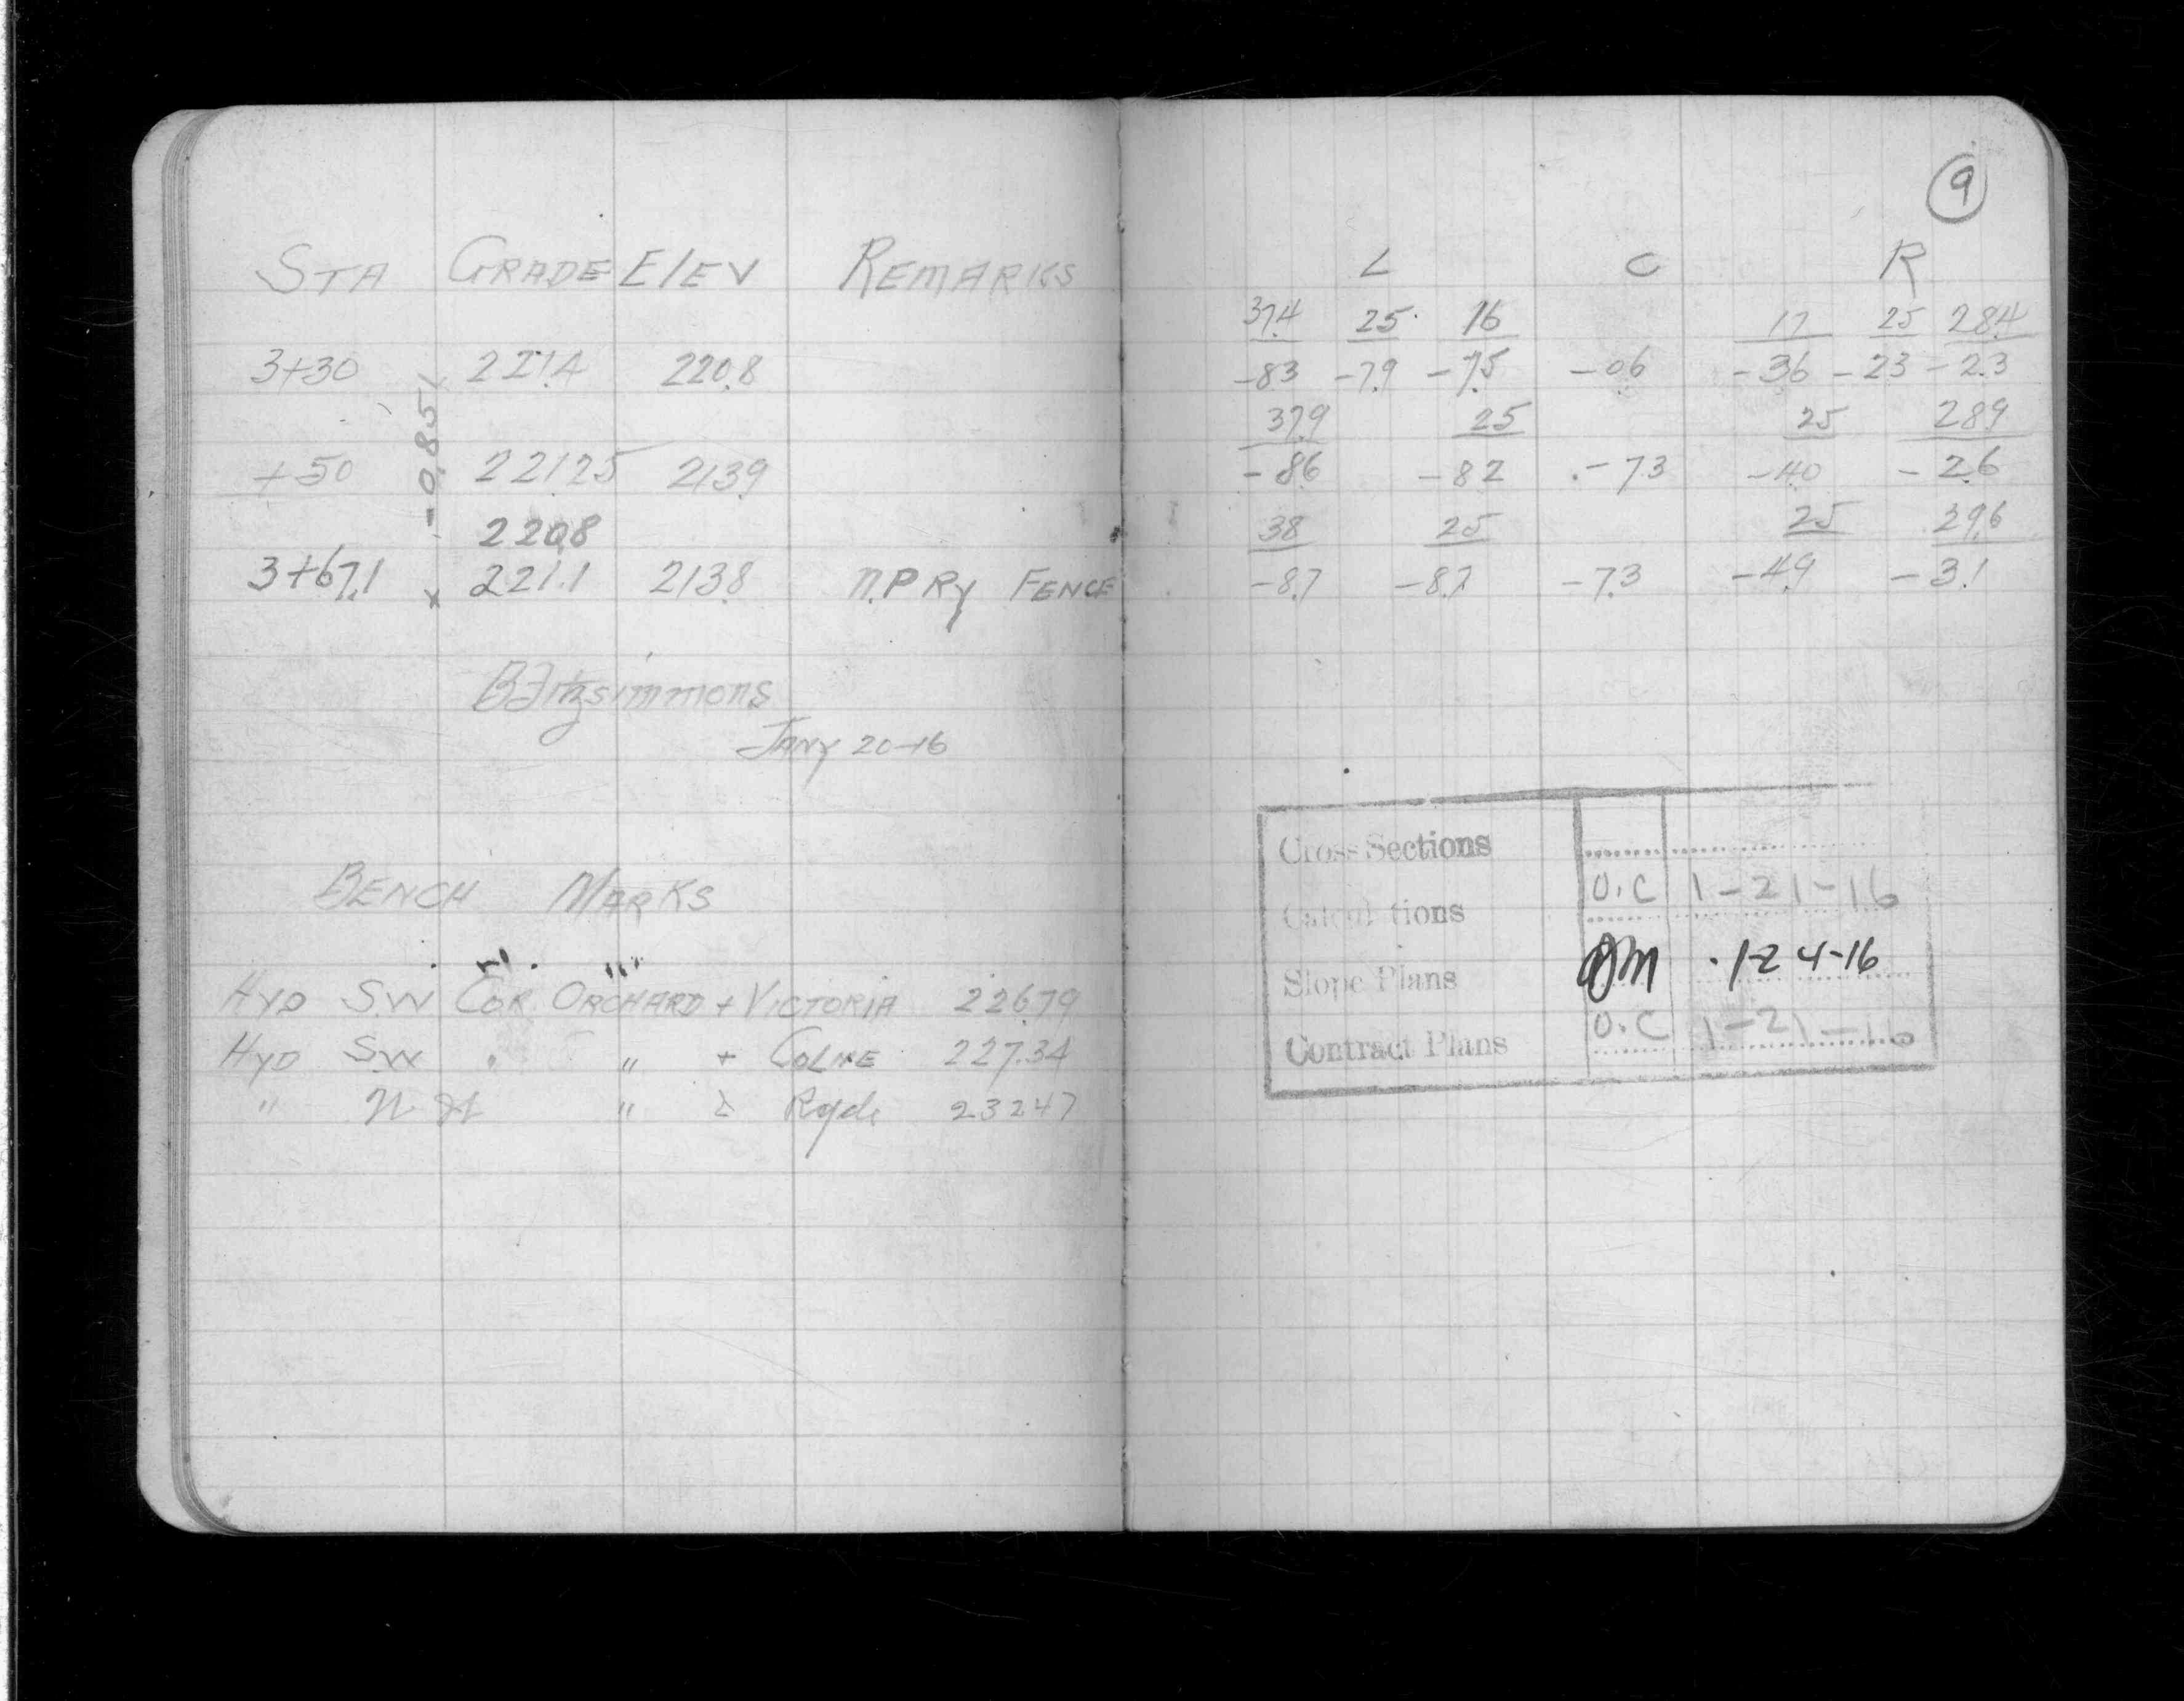 9
STA GRADE ELEV REMARKS
3+30 221.4 220.8
-0.85%
+50 221.25 213.9
220.8
3+67.1 x 221.1 213.8 N.P Ry FENCE
B Fitzsimmons
JANY 20-16
BENCH MARKS
HYD S.W COR. ORCHARD + VICTORIA 226.79
HYD SW " " + COLNE 227.34
" " & Ryde 232.47
L C R
37.4 25 16 17 25 28.4
-8.3 -7.9 -7.5 -0.6 -3.6 -2.3 -2.3
37.9 25 25 28.9
-8.6 -8.2 -7.3 -4.0 -2.6
38 25 25 29.6
-8.7 -8.7 -7.3 -4.9 -3.1
Cross Sections
Calculations O.C 1-21-16
Slope Plans 1-24-16
Contract Plans O.C 1-21-16